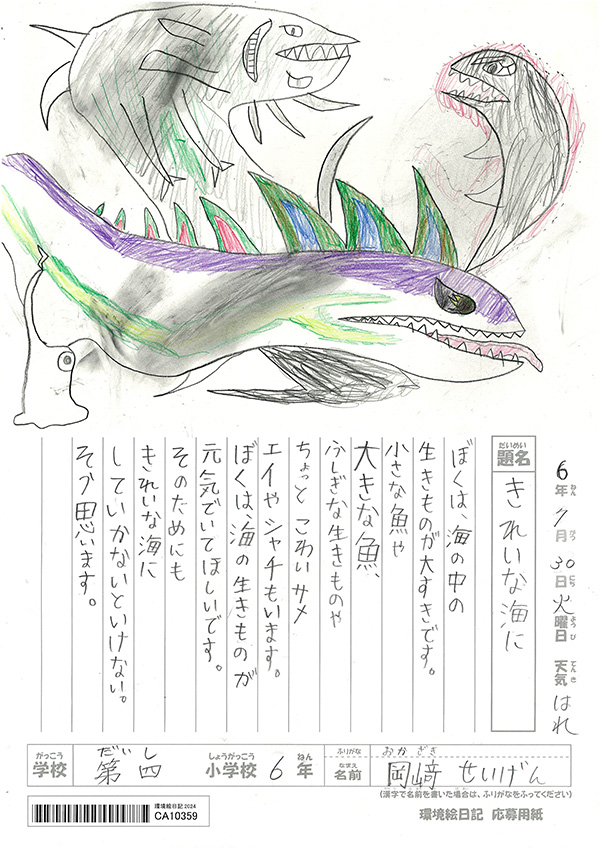 6年7月30日火曜日 天気 はれ
ねん がつ にち ようび てんき
だいめい
題名 きれいな海に
ぼくは、海の中の
生きものが大すきです。
小さな魚や
大きな魚、
ふしぎな生きものや
ちょっとこわいサメ
エイやシャチもいます。
ぼくは、海の生きものが
元気でいてほしいです。
そのためにも
きれいな海に
していかないといけない。
そう思います。
がっこう だいし しょうがっこう ねん
学校 第四 小学校 6年
ふりがな おかざき
なまえ
名前 岡﨑 せいげん
(漢字で名前を書いた場合は、ふりがなをふってください)
環境絵日記2024
CA10359
環境絵日記 応募用紙